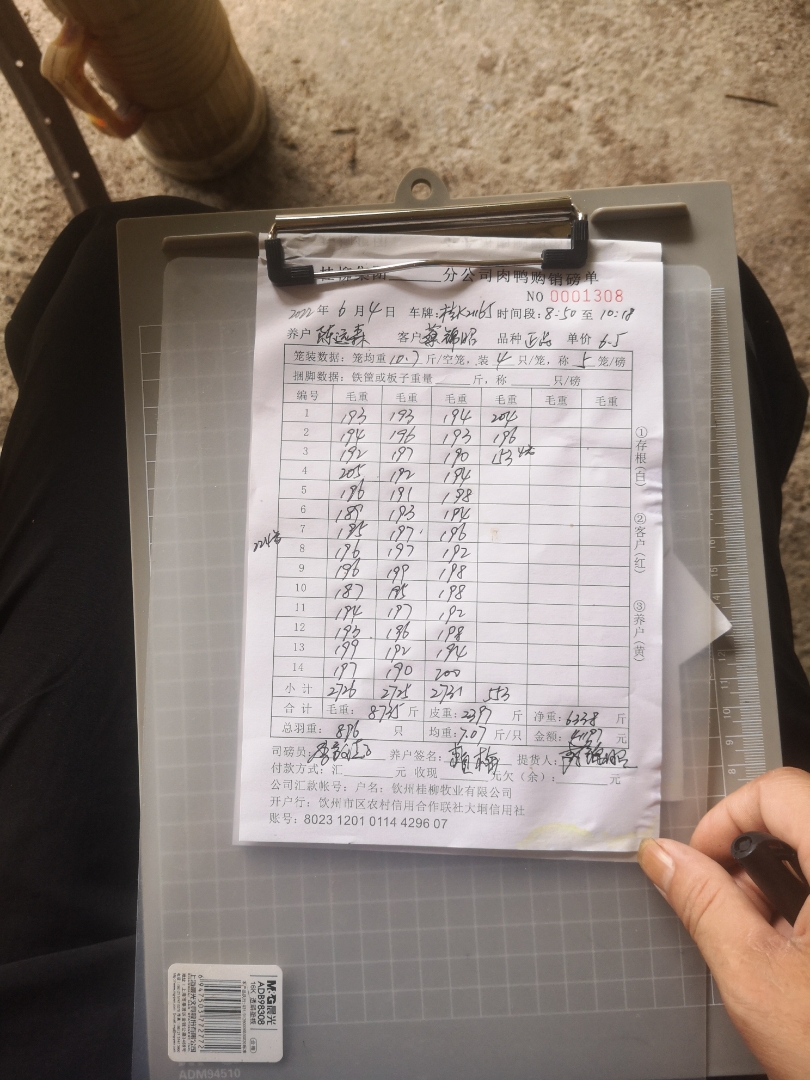 桂柳集团______分公司肉鸭购销磅单
NO 0001308
2022年 6月 4日 车牌: 时间段: 8:50 至 10:18
养户 陈远森 客户 品种 正品 单价 6.5
笼装数据: 笼均重 10.7 斤/空笼, 装 4 只/笼, 称 5 笼/磅
捆脚数据: 铁筐或板子重量______斤, 称______只/磅
编号 毛重 毛重 毛重 毛重 毛重 毛重
1 193 193 194 204
2 194 196 193 196
3 192 197 190 153 4笼
4 205 192 194
5 196 191 198
6 189 193 194
7 195 197 196
224笼
8 196 197 192
9 196 199 198
10 187 195 198
11 194 197 192
12 193 196 198
13 199 192 194
14 197 190 200
小计 2726 2725 2731 553
合计 毛重: 8735 斤 皮重: 2397 斤 净重: 6338 斤
总羽重: 896 只 均重: 7.07 斤/只 金额: 41197 元
司磅员: 养户签名: 提货人:
付款方式: 汇______元 收现______元欠(余): ______元
公司汇款帐号: 户名: 钦州桂柳牧业有限公司
开户行: 钦州市区农村信用合作联社大垌信用社
账号: 8023 1201 0114 4296 07
①存根(白)
②客户(红)
③养户(黄)
M&G晨光
ADB98308
6947503772772
ADM94510